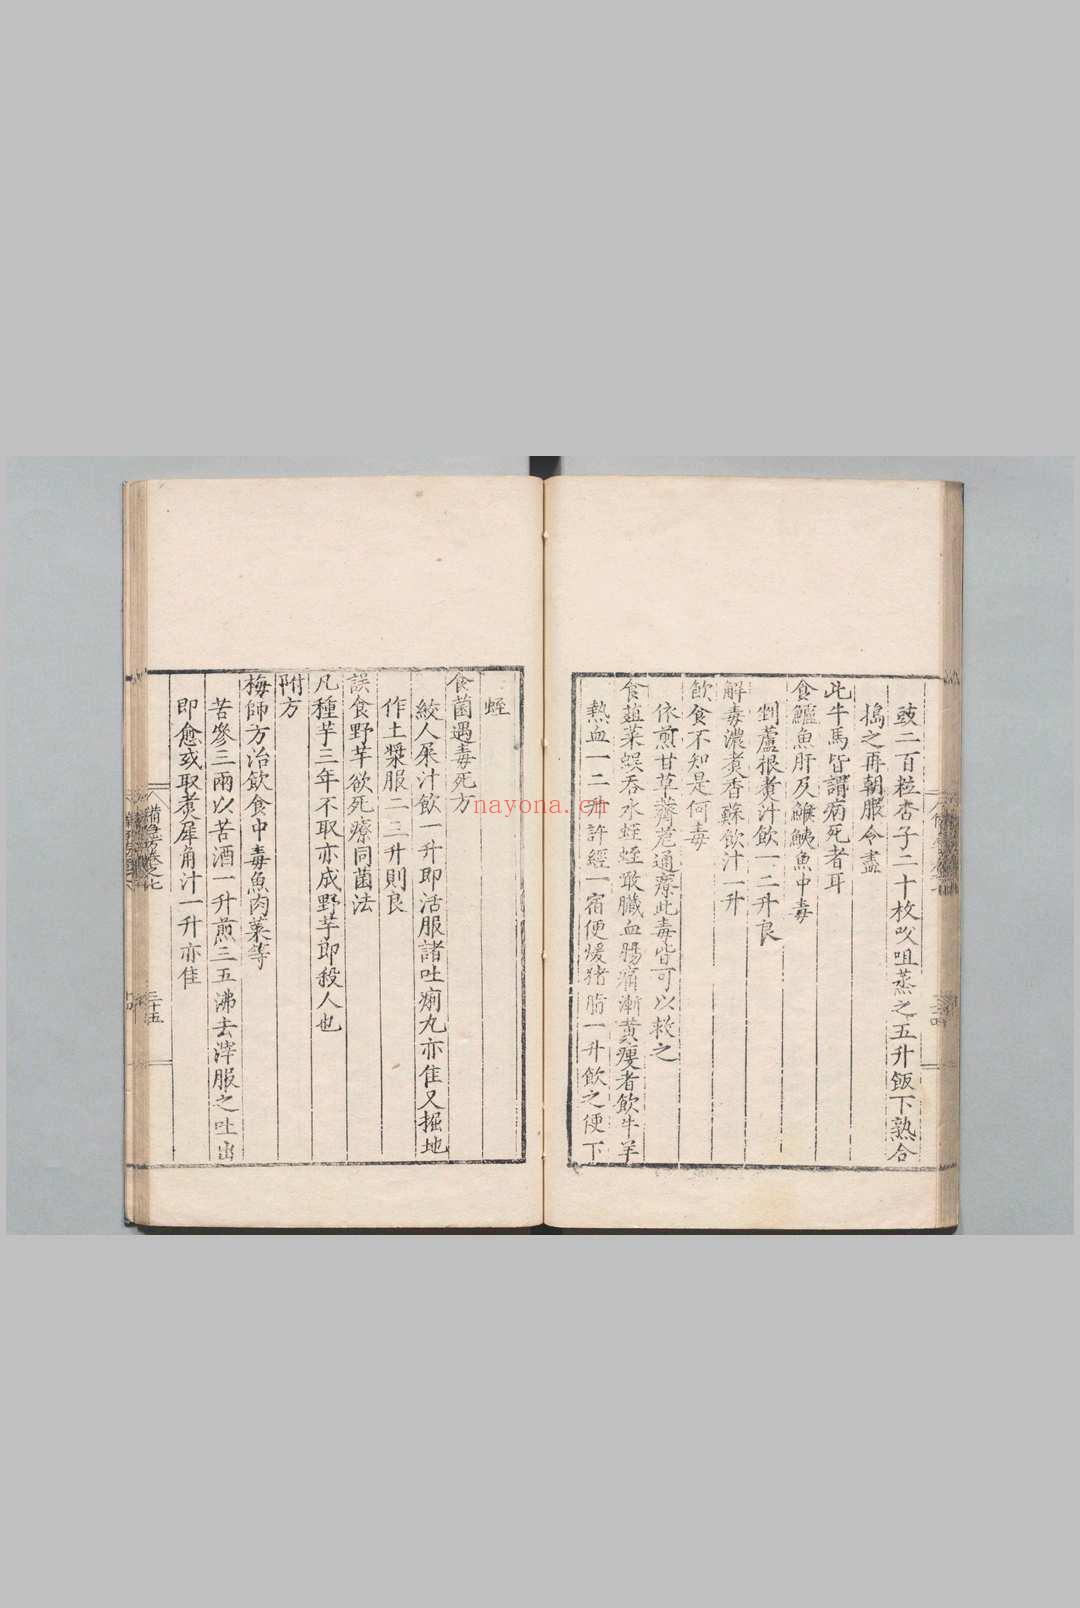 豉二百粒杏子二十枚㕮咀蒸之五升飯下熟合
搗之再朝服令盡
此牛馬皆謂病死者耳
食鱸魚肝及鯸鮧魚中毒
剉蘆根煑汁飲一二升良
解毒濃煑香蘇飲汁一升
飲食不知是何毒
依煎甘草薺苨通療此毒皆可以救之
食葅菜悮吞水蛭蛭敢臟血腸痛漸黄瘦者飲牛羊
熱血一二升許經一宿便煖猪脂一升飲之便下
蛭
食菌遇毒死方
絞人屎汁飲一升即活服諸吐痢丸亦佳又掘地
作土漿服二三升則良
誤食野芋欲死療同菌法
凡種芋三年不取亦成野芋即殺人也
附方
梅師方治飲食中毒魚肉菜等
苦參三兩以苦酒一升煎三五沸去滓服之吐出
即愈或取煑犀角汁一升亦佳
備急方卷之七
三十五
nayona.cn